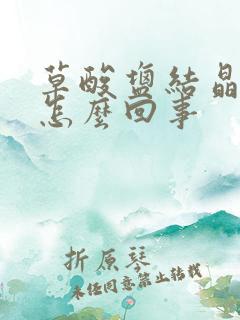 草酸盐结晶
怎麽回事
折原琴
未经同意禁止转载